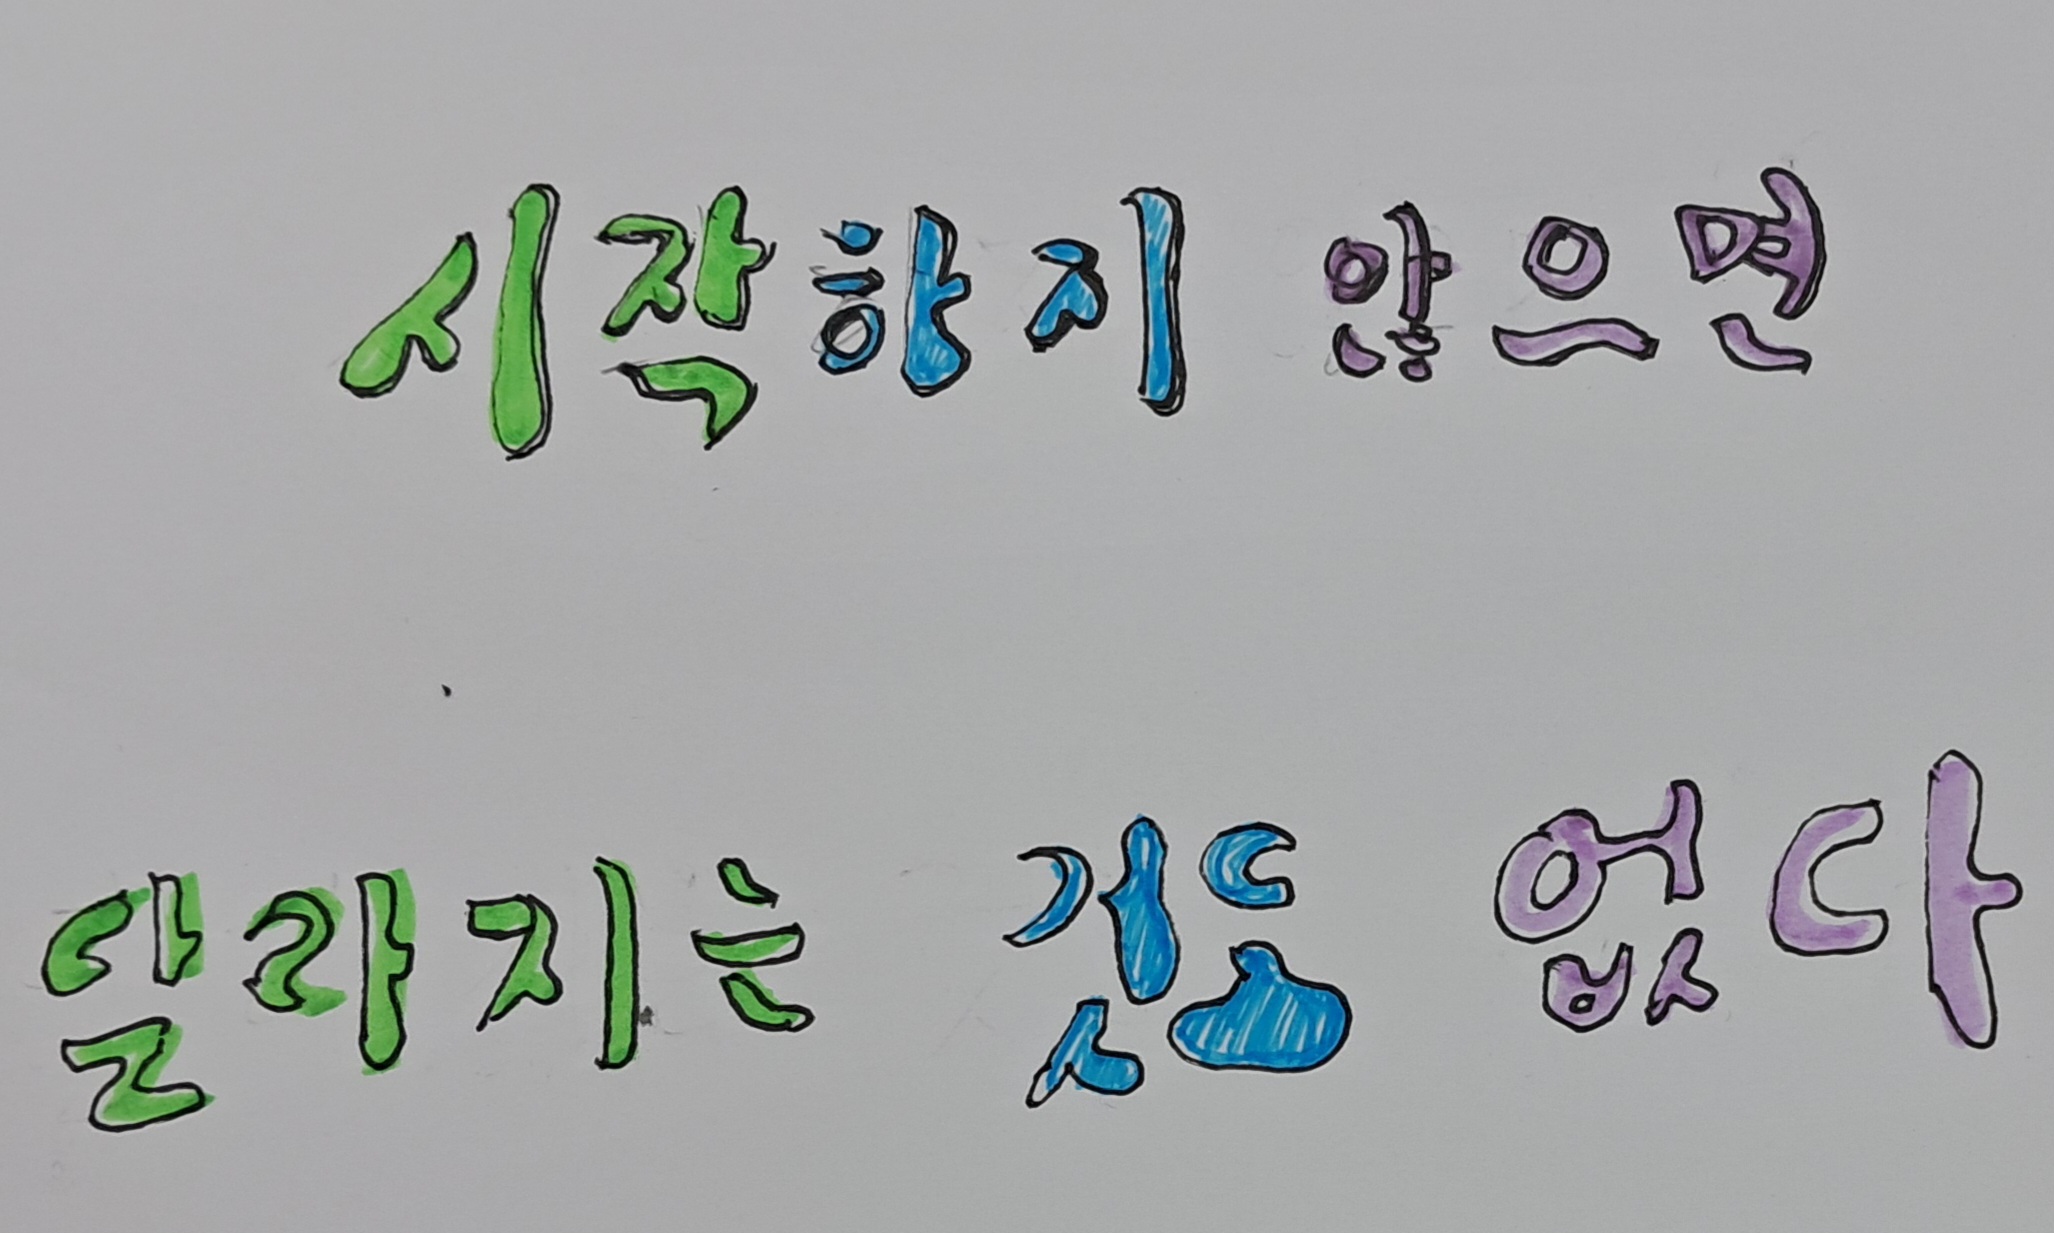 시작하지 않으면
달라지는 것도 없다